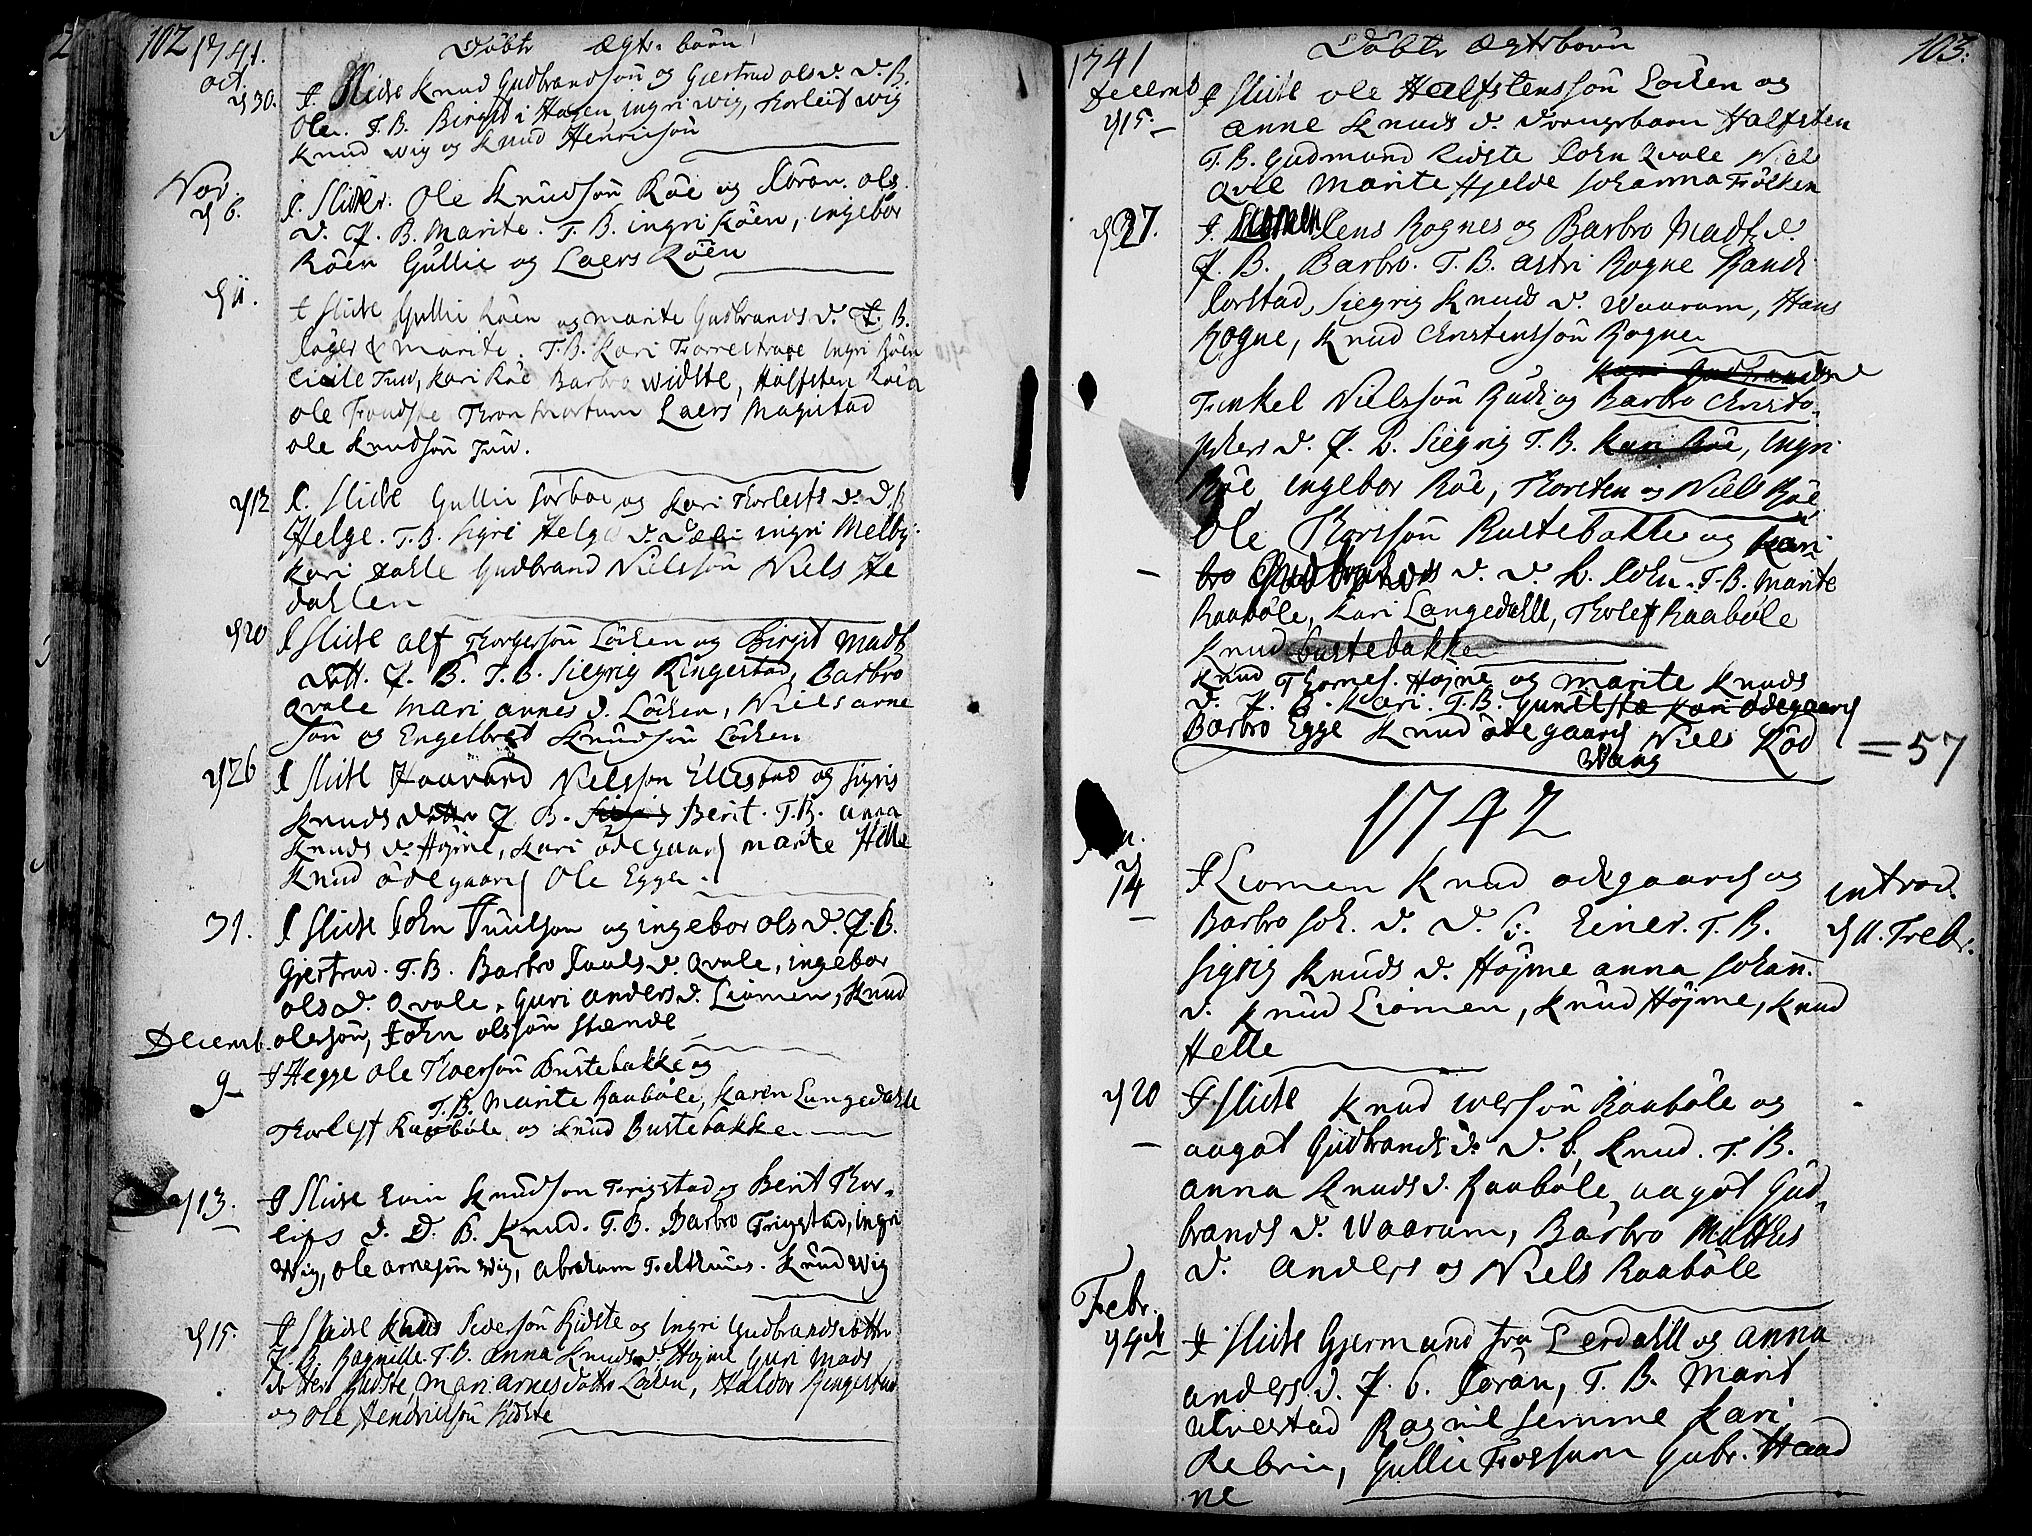 102
1741.
Döbte Ægte börn
oct.
d 30. J Slidre Knud Gudbrandsön og Giertrud ols d. D. B.
Ole. T. B. Birgit i Hagen, ingri wig, Thorleif wig
Knud wig og Knud Henricsön
Nov.
d 6. J. Slidre. Ole Knudsön Röe og Joran ols
d. P. B. Marite. T. B. ingri Röen, ingebor
Röen Gullic og Laers Röen
d 11. J Slidre Gullic Röen og marite Gudbrands d. P. B.
& marite. T. B. Kari ingri Röen
Cicile Tuv, Kari Röe Barbro Widste, Halfsten Röen
ole Laers Magistad
ole Knudsön Tuv.
d 13 J. Slidre Gullic Sörboe og Kari Thorlefs d. D. B
Helge. T. B. Sigri Helge d. ingri Melby
Kari Gudbrand Nielsön Niels He
dahlen
d 20 J Slidre Alf Thorgersön Löcken og Birgit Madt
Datt. P. B. T. B. Siegrig Ringestad, Barbro
Qvale Mari annes d. Löcken, Niels arne
sön og Engelbret Knudsön Löcken
d 26 J Slidre Haavard Nielsson Ellestad og Sigris
Knuds datter P. B. Berit. T. B. anna
Knuds d. Höjme, Kari ödegaard marite Helle
Knud ödegaard Ole Egge.
31. J Slidre John Juulson og ingebor ols d. P. B.
Gjertrud. T. B. Barbro Juuls d. Qvale, ingebor
ols d. Qvale, Guri anders d. Liomen, Knud
olessön, John olssön Stende
Decemb.
9 J Hegge ole Thoersön Bustebakke og
T. B. Marite Raaböle, Karen Langedahll
Thorlef Raaböle og Knud Bustebakke
d 13. J Slidre Knudson Trigstad og Berit Thor-
lefs d. D. B. Knud. T. B. Barbro Trigstad, ingri
Wig, ole arnesön Wig, Abraham Knud Wig
d 15. J Slidre Knud Iversön Kidste og Ingri Gudbrandsdatter
P. B. Ragnille. T. B. anna Knuds d. Höjme Guri Mads
datter Kidste, Mari arnesdatter Löcken, Haldor Ringestad
og Ole Hendricsön Kidste
1741
Döbte Ægte börn
103.
Decemb
d 15 J Slidre ole Halfstenssön Löcken og
anne Knuds d. Drengebarn Halfsten
T. B. Gudmund Kidste John Qvale Niels
Qvle Marite Hjelde Johanna Frölken
d 27. J. Liomen Jens Rognes og Barbro Madt d.
P. B. Barbro. T. B. astri Rogne Randi
Jorstad, Siegrig Knuds d. Waaram, Hans
Rogne, Knud Christenssön Rogne
Kari Gudbrands d
Tinkel Nielssön Rudi og Barbro Christo-
phers d. P. B. Siegrig T. B. Kari Röe, Ingri
Röe, ingebor Röe, Thorsten og Niels Röe
Ole Thorssön Rustebakke og Kari
bro Gudbrands d. D. B. John. T. B. Marite
Raaböle, Kari Langedahll, Thorlef Raaböle
Knud Bustebakke
Knud Thomes. Höjne og marite Knuds
d. P. B. Kari. T. B. Gunild Kari ödegaard
Barbro Egge Knud ödegaard Niels Röd
Wang
= 57
1742
14 J Liomen Knud odegaard og
Barbro Joh. d. D. B. Einer. T. B.
Sigrig Knuds d. Höjme anna Johan.
d. Knud Liomen, Knud Höjme, Knud
Helle
introd.
d 11. Febr.
d 20 J Slidre Knud iversön Raaböle og
aagot Gudbrands d. D. B. Knud. T. B.
anna Knuds d. Raaböle, aagot Gud-
brands d. Waaram, Barbro Mathis
d. Anders og Niels Raaböle
Febr.
d 4de J Slidre Gjermund fra Lerdahll og anna
anders d. P. B. Joran, T. B. Marit
Ulvestad Ragnil Semme Kari
Rebrin, Gullic Fossum Gubr. Haad
ne